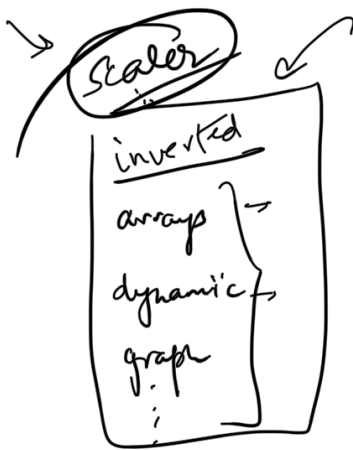 scaler
inverted
arrays
dynamic
graph